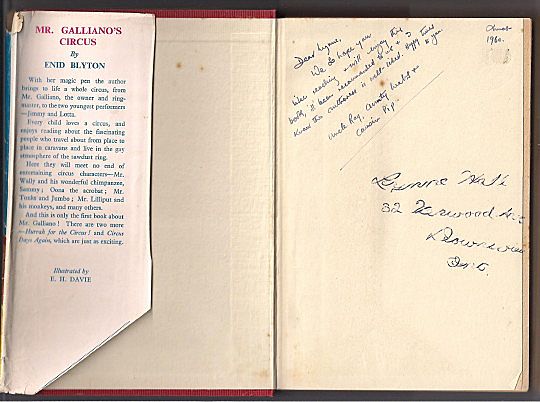 MR. GALLIANO'S
CIRCUS
By
ENID BLYTON
With her magic pen the author
brings to life a whole circus, from
Mr. Galliano, the owner and ring-
master, to the two youngest performers
—Jimmy and Lotta.
Every child loves a circus, and
enjoys reading about the fascinating
people who travel about from place to
place in caravans and live in the gay
atmosphere of the sawdust ring.
Here they will meet no end of
entertaining circus characters—Mr.
Wally and his wonderful chimpanzee,
Sammy; Oona the acrobat; Mr.
Tonks and Jumbo; Mr. Lilliput and
his monkeys, and many others.
And this is only the first book about
Mr. Galliano! There are two more
—Hurrah for the Circus! and Circus
Days Again, which are just as exciting.
Illustrated by
E. H. DAVIE
1960.
Dear Lynne,
We do hope you
like reading & will enjoy this
book, it been recommended to us & I
know the authoress is well-liked.
Uncle Ray, Aunty &
Cousin Pip.
Lynne
32